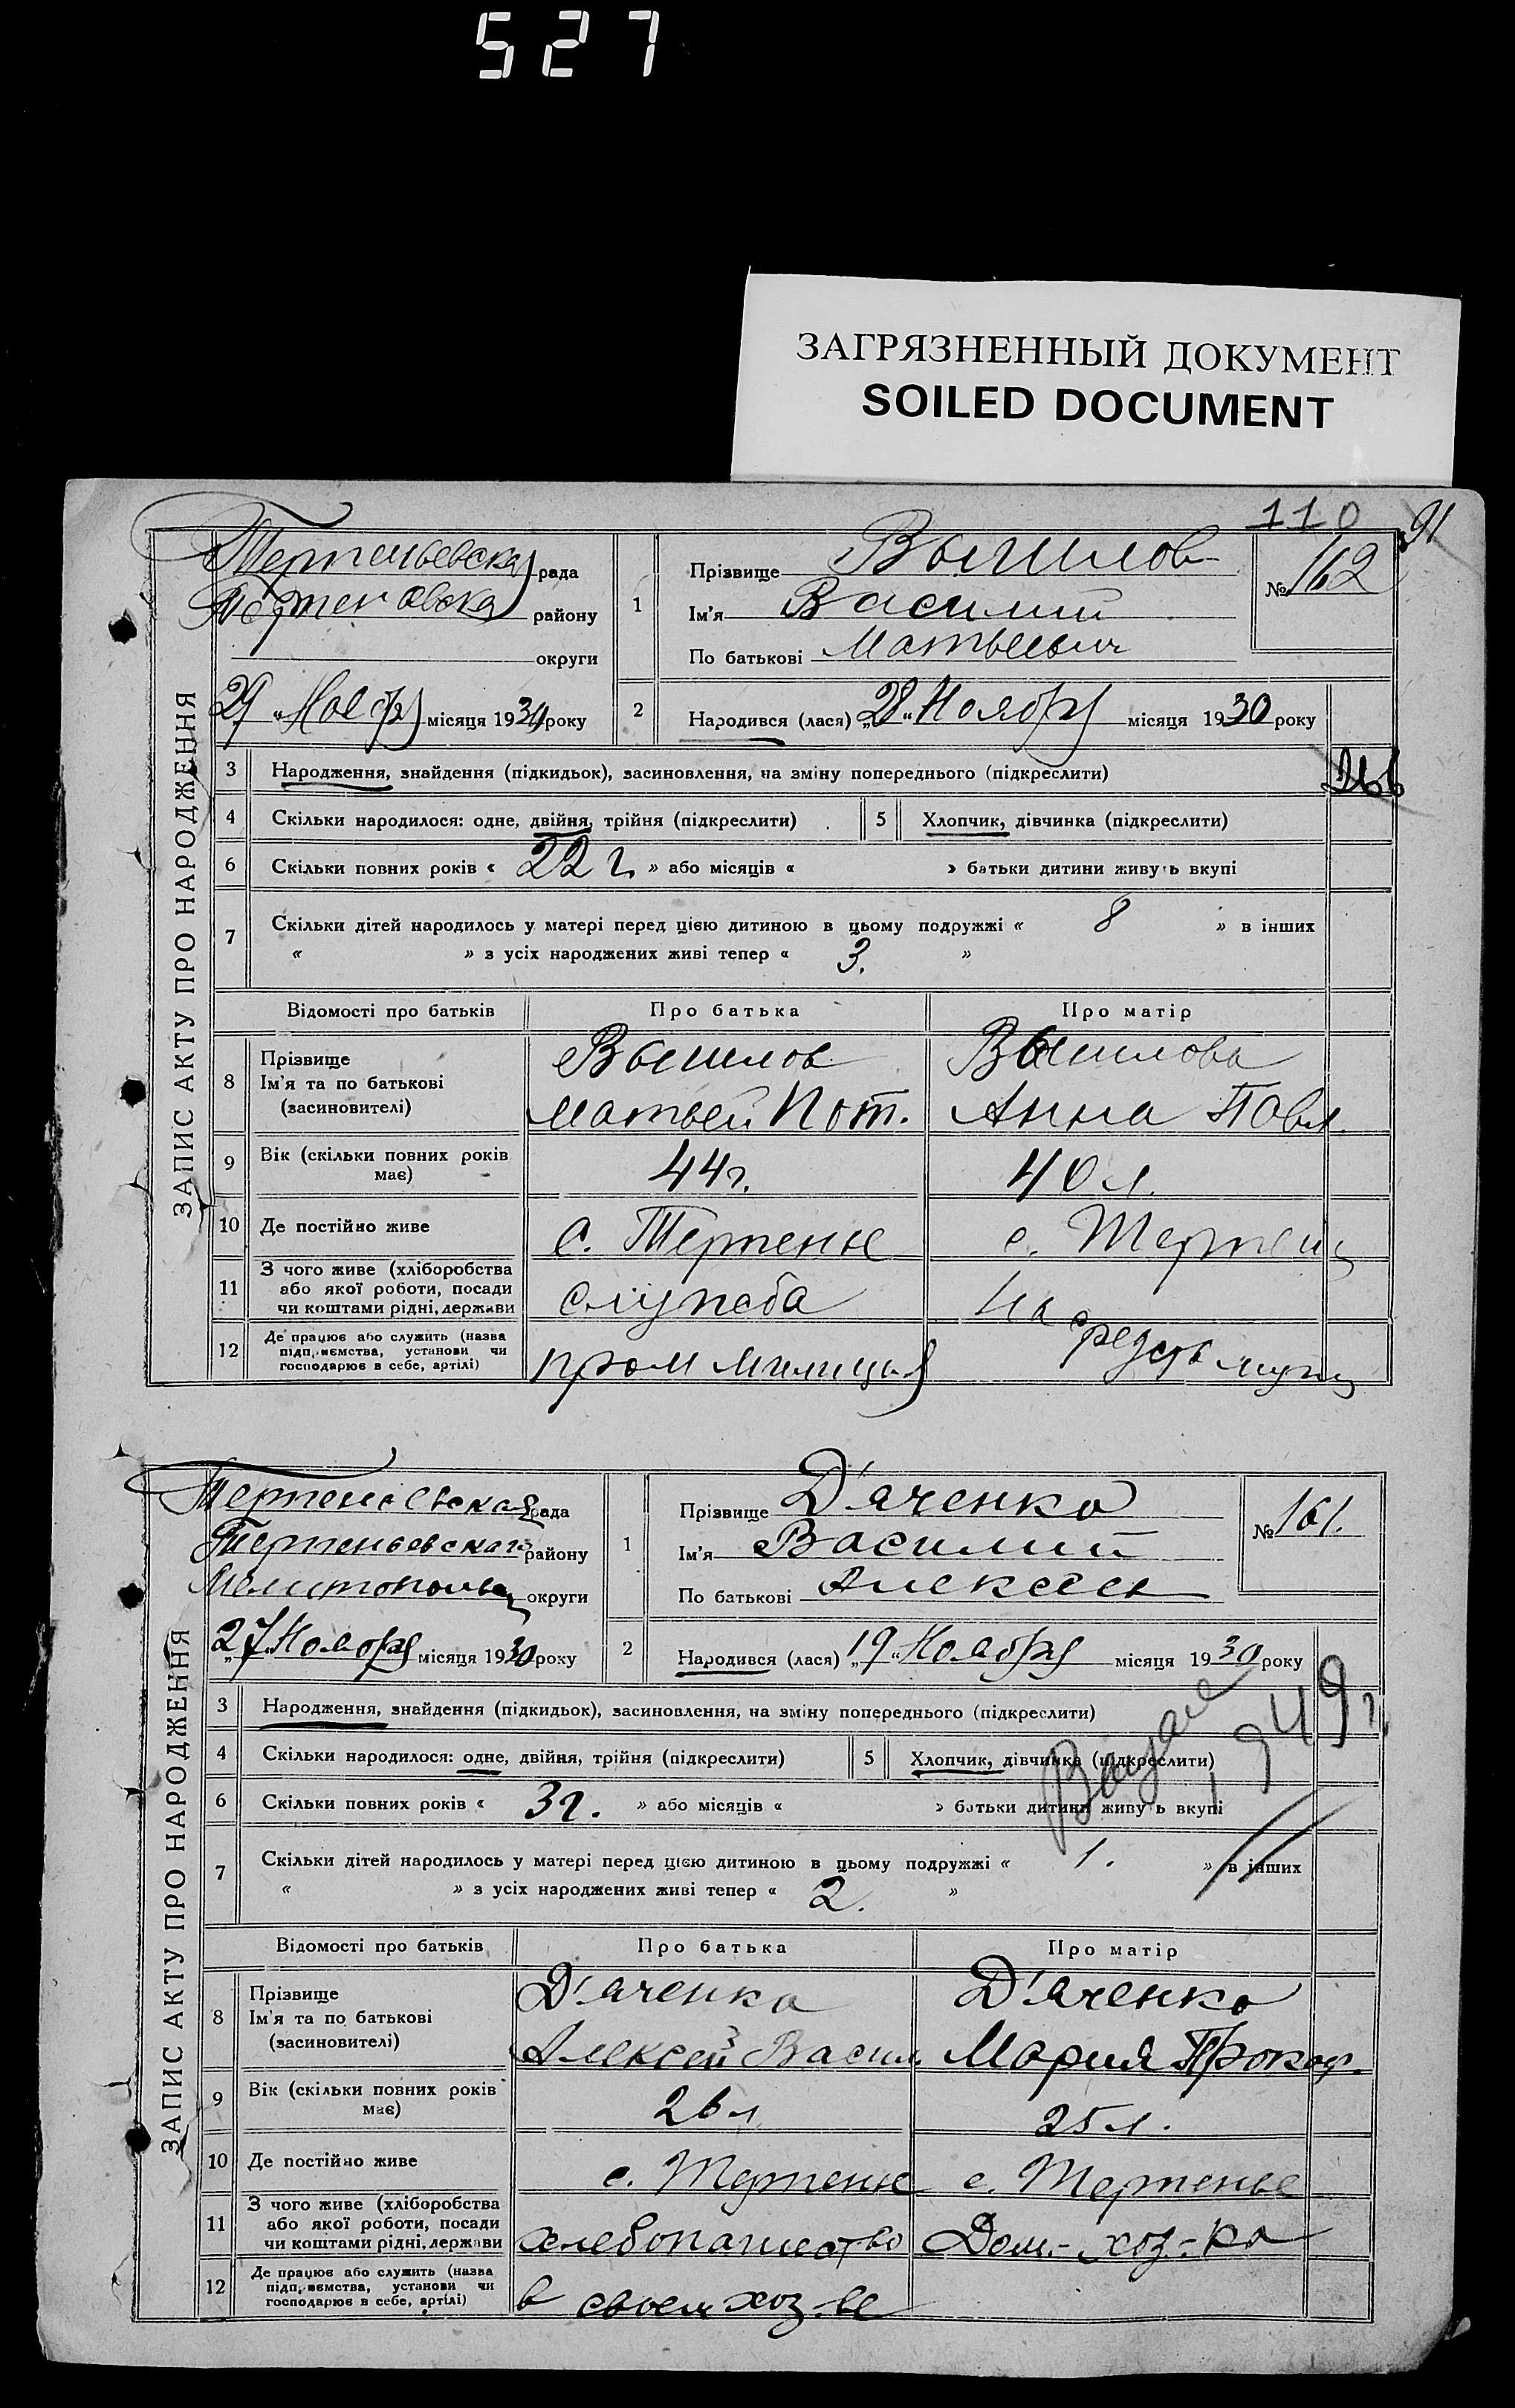 527
ЗАГРЯЗНЕННЫЙ ДОКУМЕНТ
SOILED DOCUMENT
110 91
ЗАПИС АКТУ ПРО НАРОДЖЕННЯ
рада
району
округи
29 „ Ноября місяця 1930 року
1 Прізвище Вышлов
Ім'я Василий
По батькові Матвеевич
№ 162
2 Народився (лася) „28 „ Ноября місяця 1930 року
3 Народження, знайдення (підкидьок), засиновлення, на зміну попереднього (підкреслити)
4 Скільки народилося: одне, двійня, трійня (підкреслити) 5 Хлопчик, дівчинка (підкреслити)
6 Скільки повних років « 22 г. » або місяців « » батьки дитини живуть вкупі
7 Скільки дітей народилось у матері перед цією дитиною в цьому подружжі « 8 » в інших
« » з усіх народжених живі тепер « 3. »
Відомості про батьків Про батька Про матір
8 Прізвище Ім'я та по батькові (засиновителі)
Вышлов Вышлова
Матвей Пот. Анна Павл.
9 Вік (скільки повних років має) 44 г. 40 л.
10 Де постійно живе с. Терпенье с. Терпенье
11 З чого живе (хліборобства або якої роботи, посади чи коштами рідні, держави служба на средств мужа
12 Де працює або служить (назва підприємства, установи чи господарює в себе, артілі) пром милиция
ЗАПИС АКТУ ПРО НАРОДЖЕННЯ
Терпеньевская рада
Терпеньевского району
округи
„27 „ Ноября місяця 1930 року
1 Прізвище Д'яченко
Ім'я Василий
По батькові Алексеев
№ 161.
2 Народився (лася) „19 „ Ноября місяця 1930 року
3 Народження, знайдення (підкидьок), засиновлення, на зміну попереднього (підкреслити)
4 Скільки народилося: одне, двійня, трійня (підкреслити) 5 Хлопчик, дівчинка (підкреслити)
6 Скільки повних років « 3 г. » або місяців « » батьки дитини живуть вкупі
7 Скільки дітей народилось у матері перед цією дитиною в цьому подружжі « 1. » в інших
« » з усіх народжених живі тепер « 2. »
1949 г.
Відомості про батьків Про батька Про матір
8 Прізвище Ім'я та по батькові (засиновителі)
Д'яченко Д'яченко
Алексей Васил. Мария Прокоф.
9 Вік (скільки повних років має) 26 л 25 л.
10 Де постійно живе с. Терпенье с. Терпенье
11 З чого живе (хліборобства або якої роботи, посади чи коштами рідні, держави хлебопашество Дом.-хоз.-ка
12 Де працює або служить (назва підприємства, установи чи господарює в себе, артілі) в своем хоз-ве